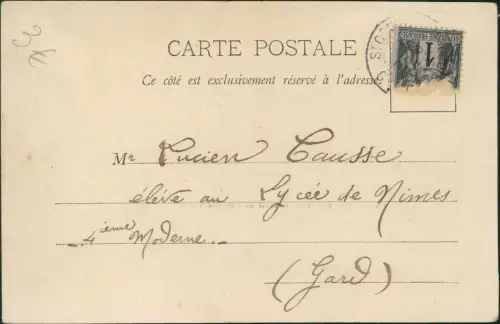 CARTE POSTALE
Ce côté est exclusivement réservé à l'adresse
Mr Lucien Causse
élève au Lycée de Nimes
4ième Moderne.
(Gard)
1